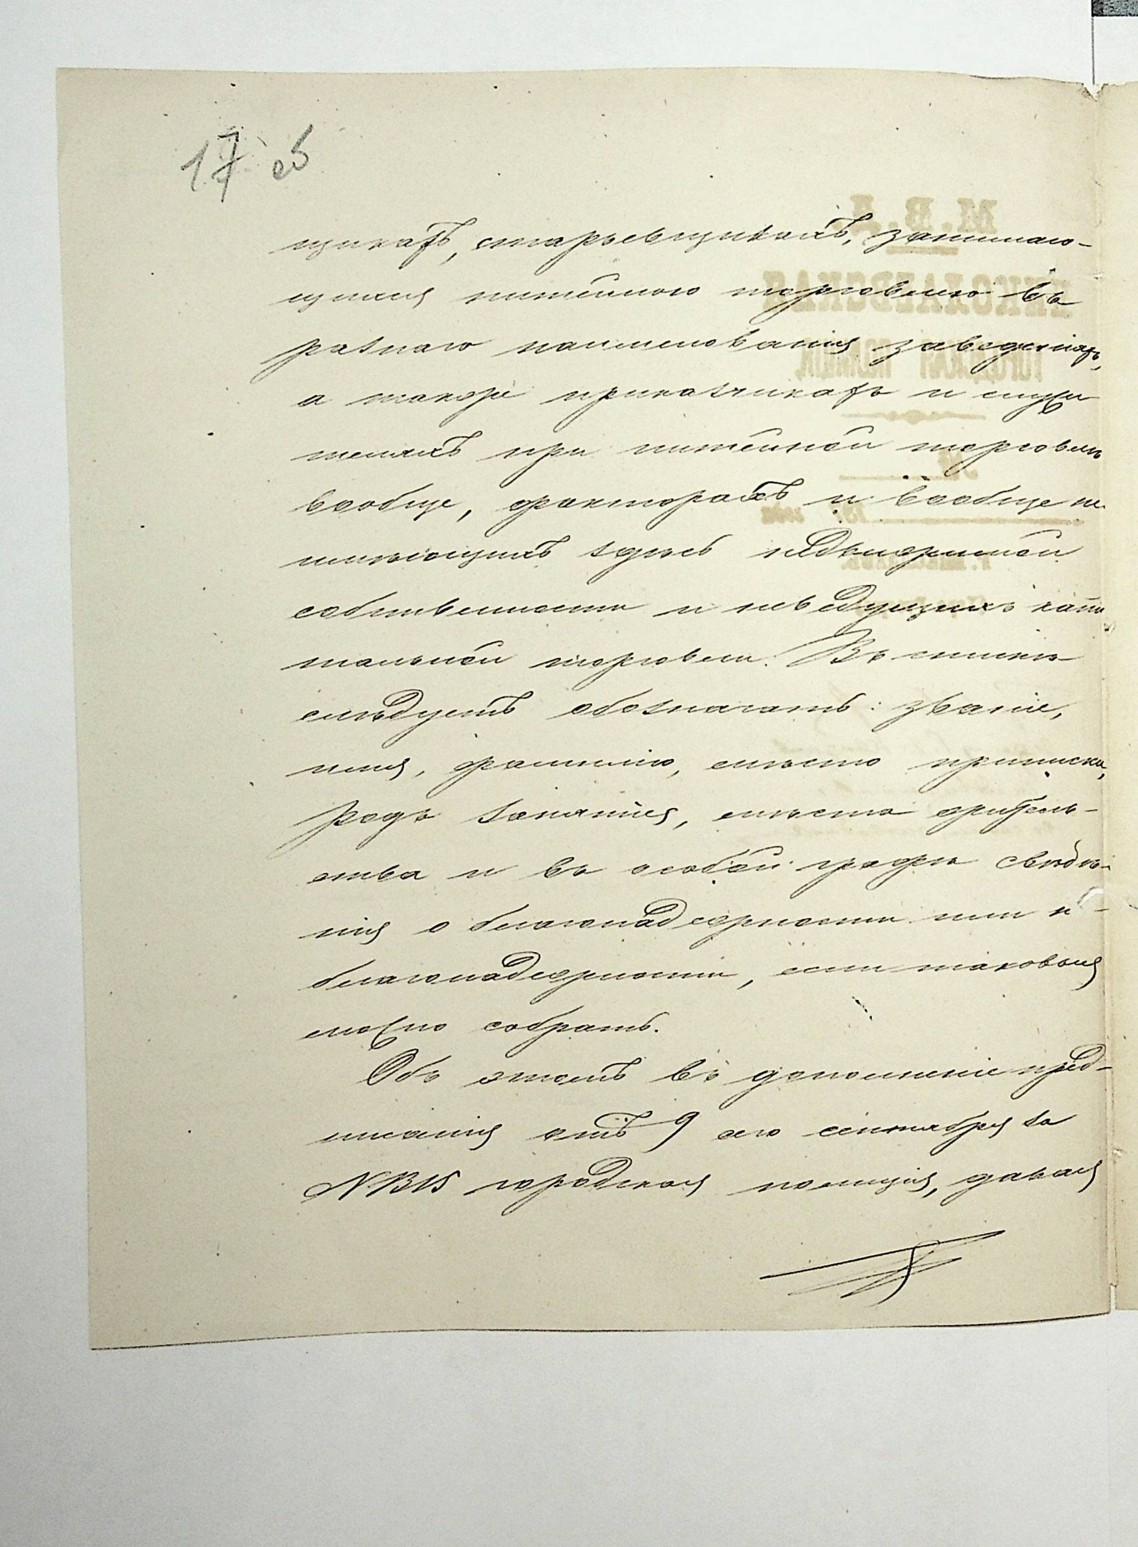 17 об
щикахъ, старьевщикахъ, занимаю-
щихся питейною торговлею въ
разнаго наименованія заведеніяхъ,
а также приказчикахъ и служи
теляхъ при питейной торговли
вообще, факторахъ и вообще не
имѣющихъ здѣсь недвижимой
собственности и неведущихъ капи
тальной торговли. Въ спискѣ
слѣдуетъ обозначать: званіе,
имя, фамилію, мѣсто приписки,
родъ занятія, мѣсто житель-
ства и въ особой графѣ свѣдѣ-
нія о благонадежности или не-
благонадежности, если таковыя
можно собрать.
Объ этомъ въ дополненіе пред-
писанія отъ 9 сего сентября за
№ городская полиція, давая
М.В.Д.
НИКОЛАЕВСКАЯ
ГОРОДСКАЯ ПОЛИЦІЯ